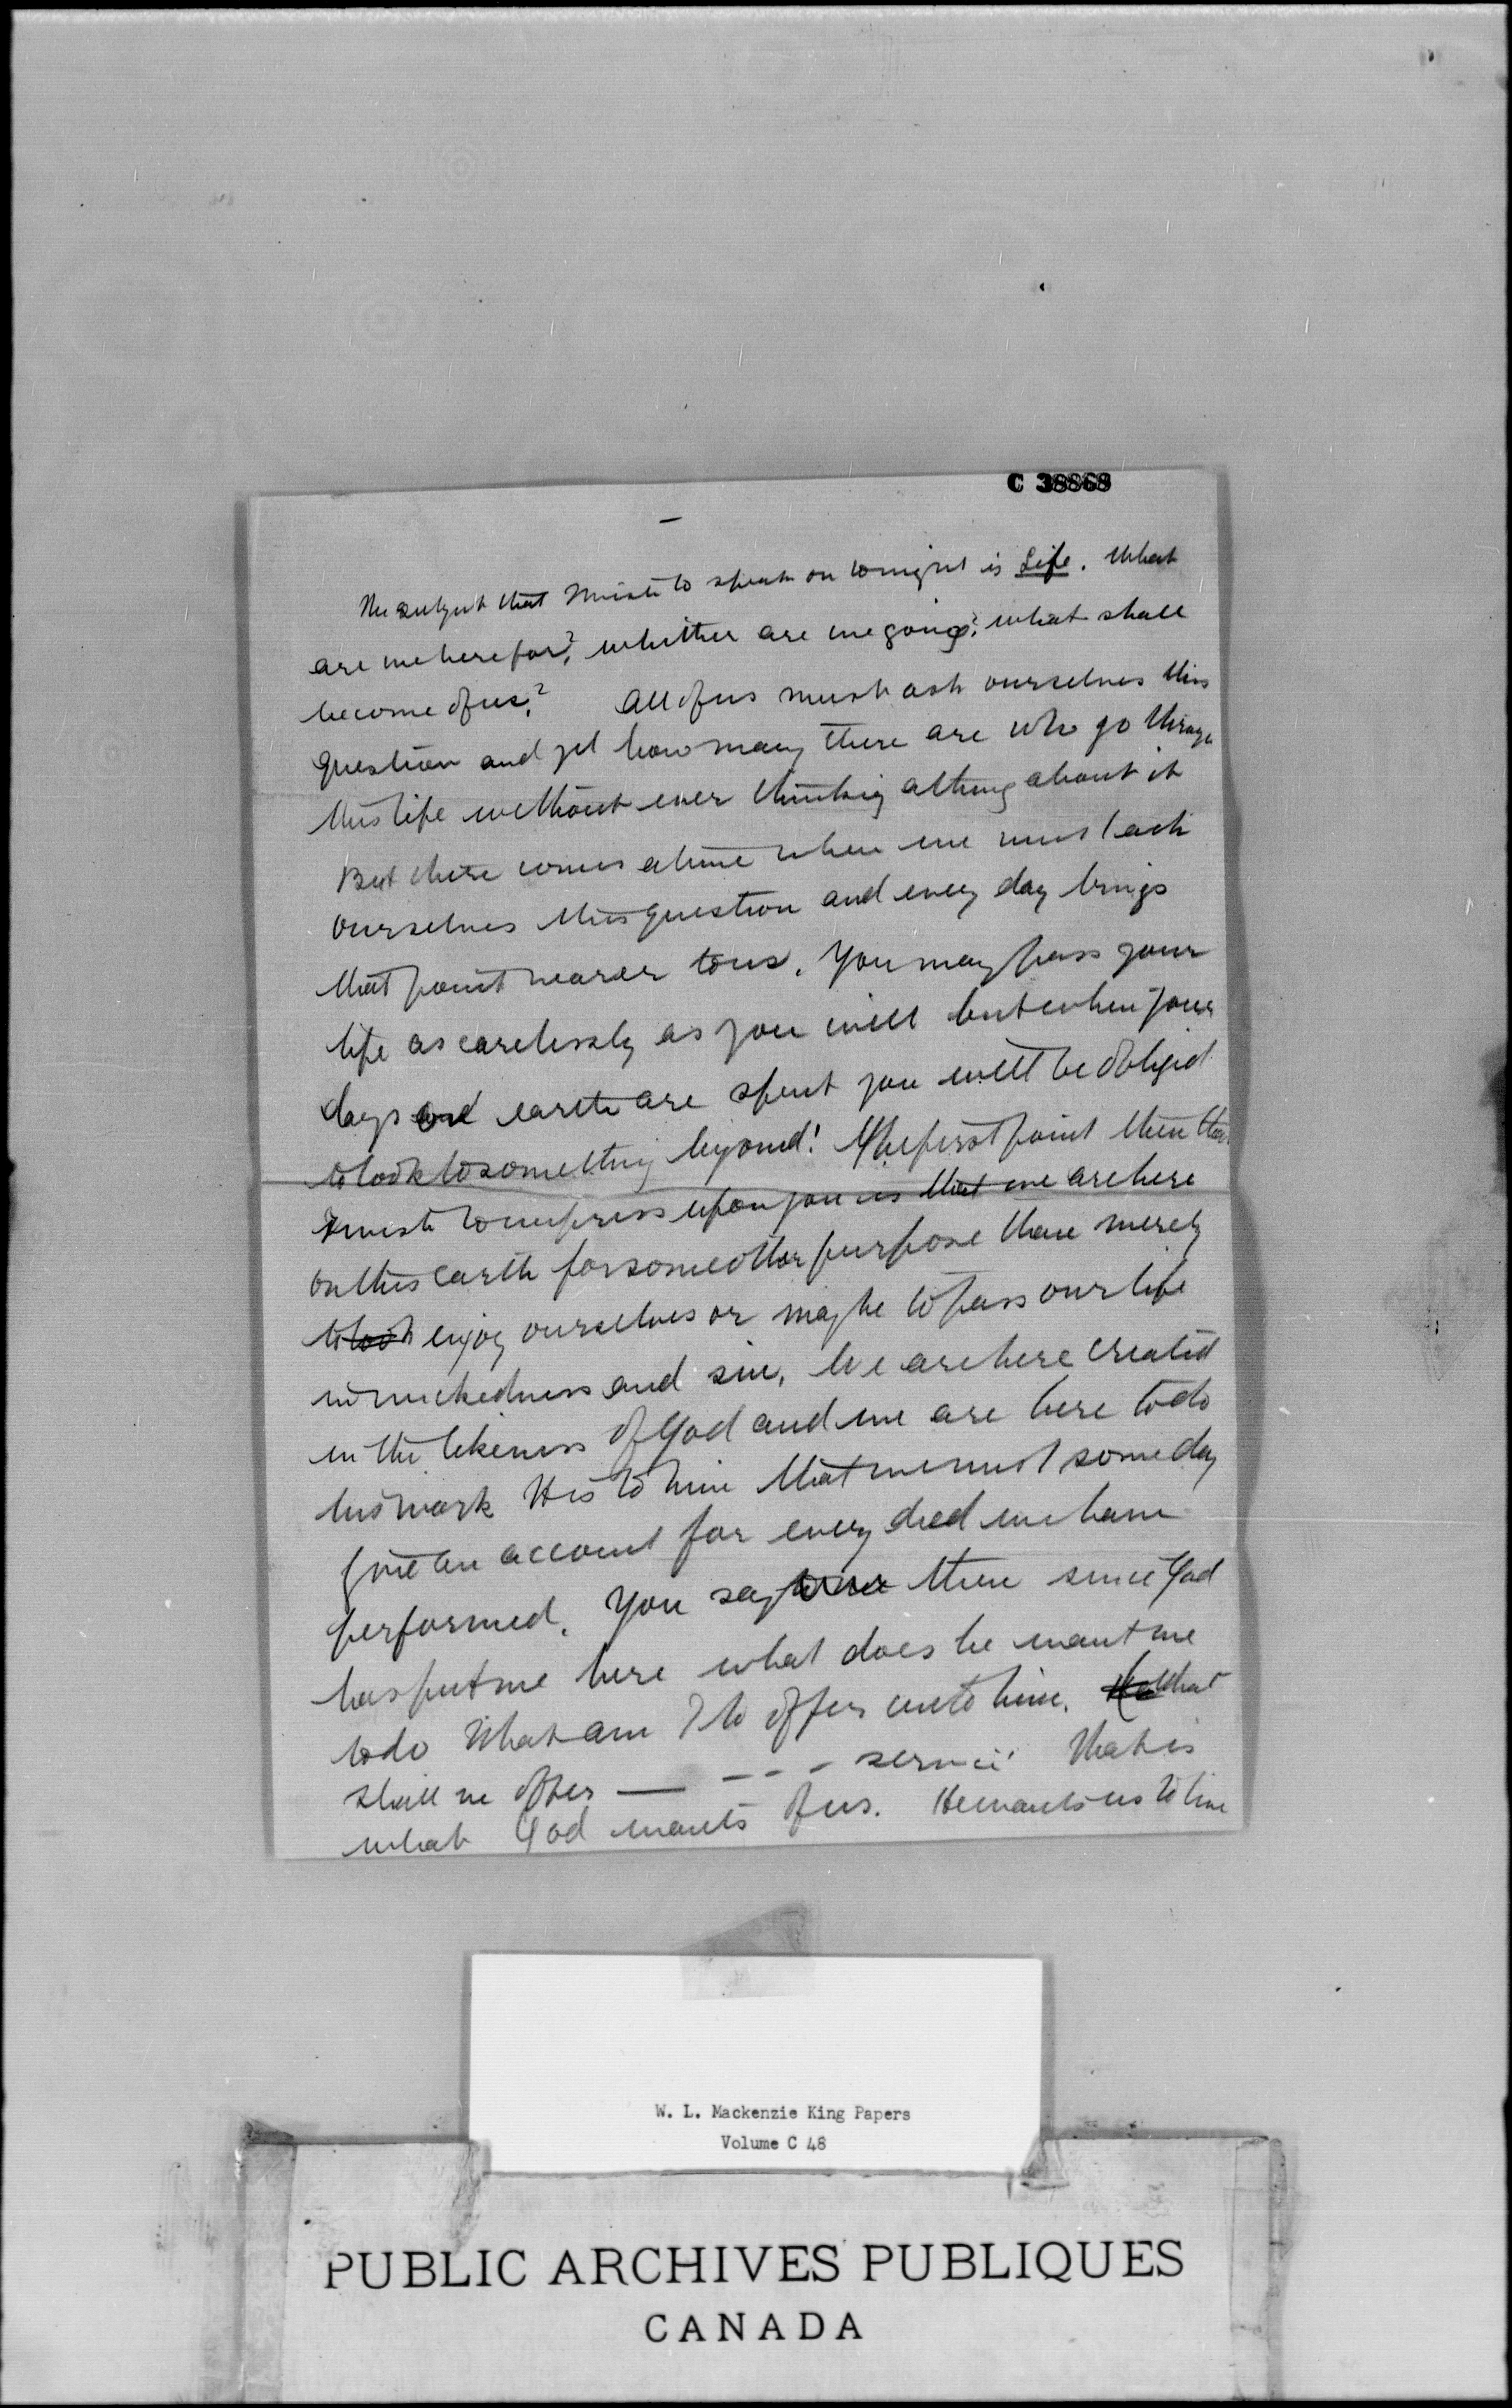 C 38868
The subject that I wish to speak on tonight is Life. What
are we here for? whither are we going? what shall
become of us? All of us must ask ourselves this
question and yet how many there are who go through
this life without ever thinking about it
But there comes a time when we must ask
ourselves this question and every day brings
that point nearer to us. You may pass your
life as carelessly as you will but when your
days on earth are spent you will be obliged
to look to something beyond! The first point then that
I wish to impress upon you is that we are here
on this earth for some other purpose than merely
to look enjoy ourselves or maybe to pass our life
in wickedness and sin. We are here created
in the likeness of God and we are here to do
his work It is to him that we must some day
give an account for every deed we have
performed. You say then since God
has put me here what does he want me
to do What am I to offer unto him. What
shall we offer — - - - service! That is
what God wants of us. He wants us to live
W. L. Mackenzie King Papers
Volume C 48
PUBLIC ARCHIVES PUBLIQUES
CANADA